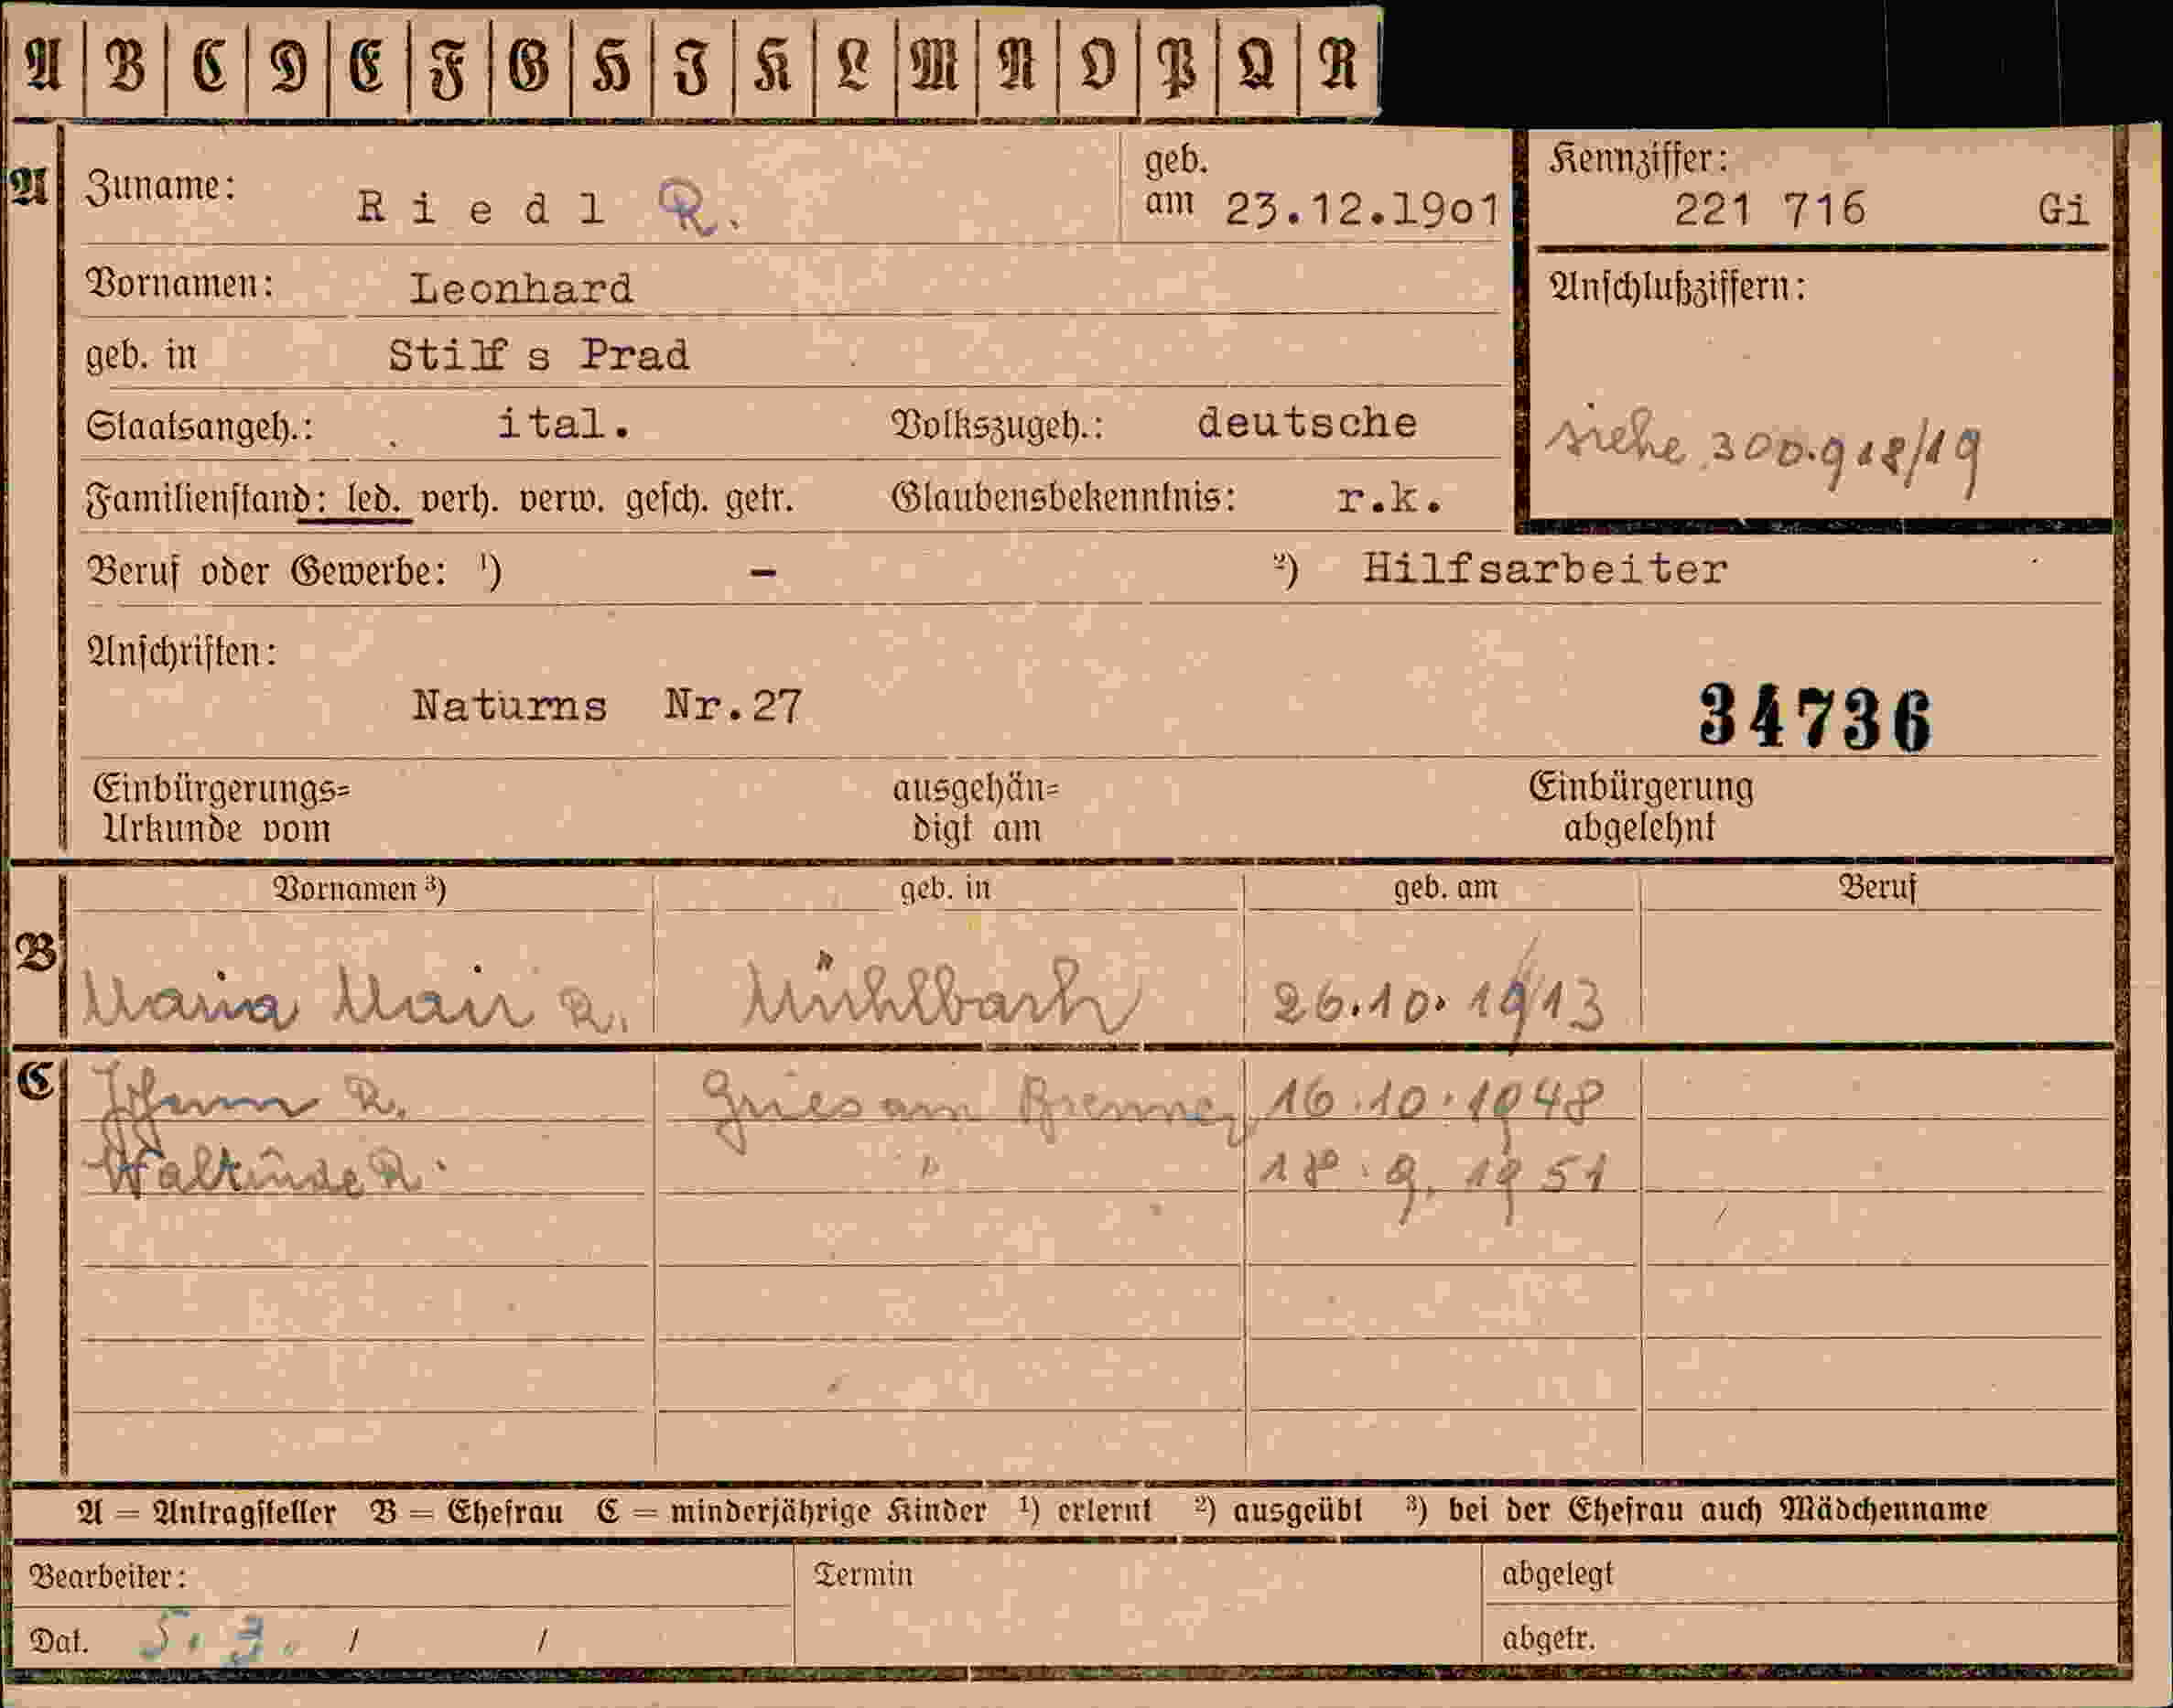 A B C D E F G H I K L M N O P Q R
A Zuname: Riedl R. geb. am 23.12.19o1 Kennziffer: 221 716 Gi
Vornamen: Leonhard Anschlußziffern:
geb. in Stilf s Prad
Staatsangeh.: ital. Volkszugeh.: deutsche siehe 300.918/19
Familienstand: led. verh. verw. gesch. getr. Glaubensbekenntnis: r.k.
Beruf oder Gewerbe: ¹) - ²) Hilfsarbeiter
Anschriften:
Naturns Nr.27 34736
Einbürgerungs= ausgehän= Einbürgerung
Urkunde vom digt am abgelehnt
Vornamen ³) geb. in geb. am Beruf
B Maria Mair R. Mühlbach 26.10.1913
C Johann R. Gries am Brenner 16.10.1948
Waltrude R. " 18.9.1951
A = Antragsteller B = Ehefrau C = minderjährige Kinder ¹) erlernt ²) ausgeübt ³) bei der Ehefrau auch Mädchenname
Bearbeiter: Termin abgelegt
Dat. 5. 3. / / abgetr.